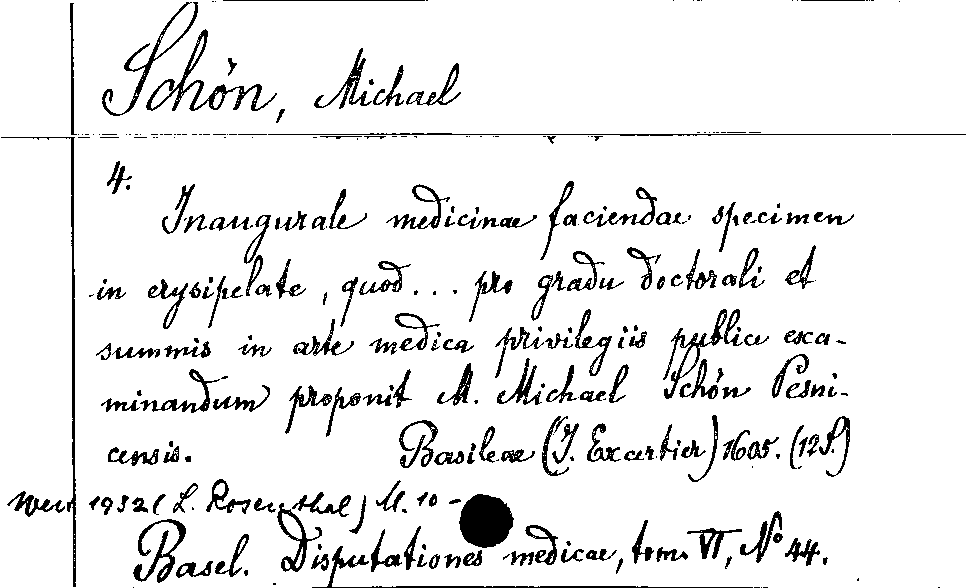 Schön, Michael
4.
Inaugurale medicinae faciendae specimen
in erysipelate, quod... pro gradu doctorali et
summis in arte medica privilegiis publice exa-
minandum proponit M. Michael Schön Pesni-
censis. Basileae (J. Excertier) 1605. (12 S.)
Wert 1932 (L. Rosenthal) M. 10 -
Basel. Disputationes medicae, tom. VI, No 44.